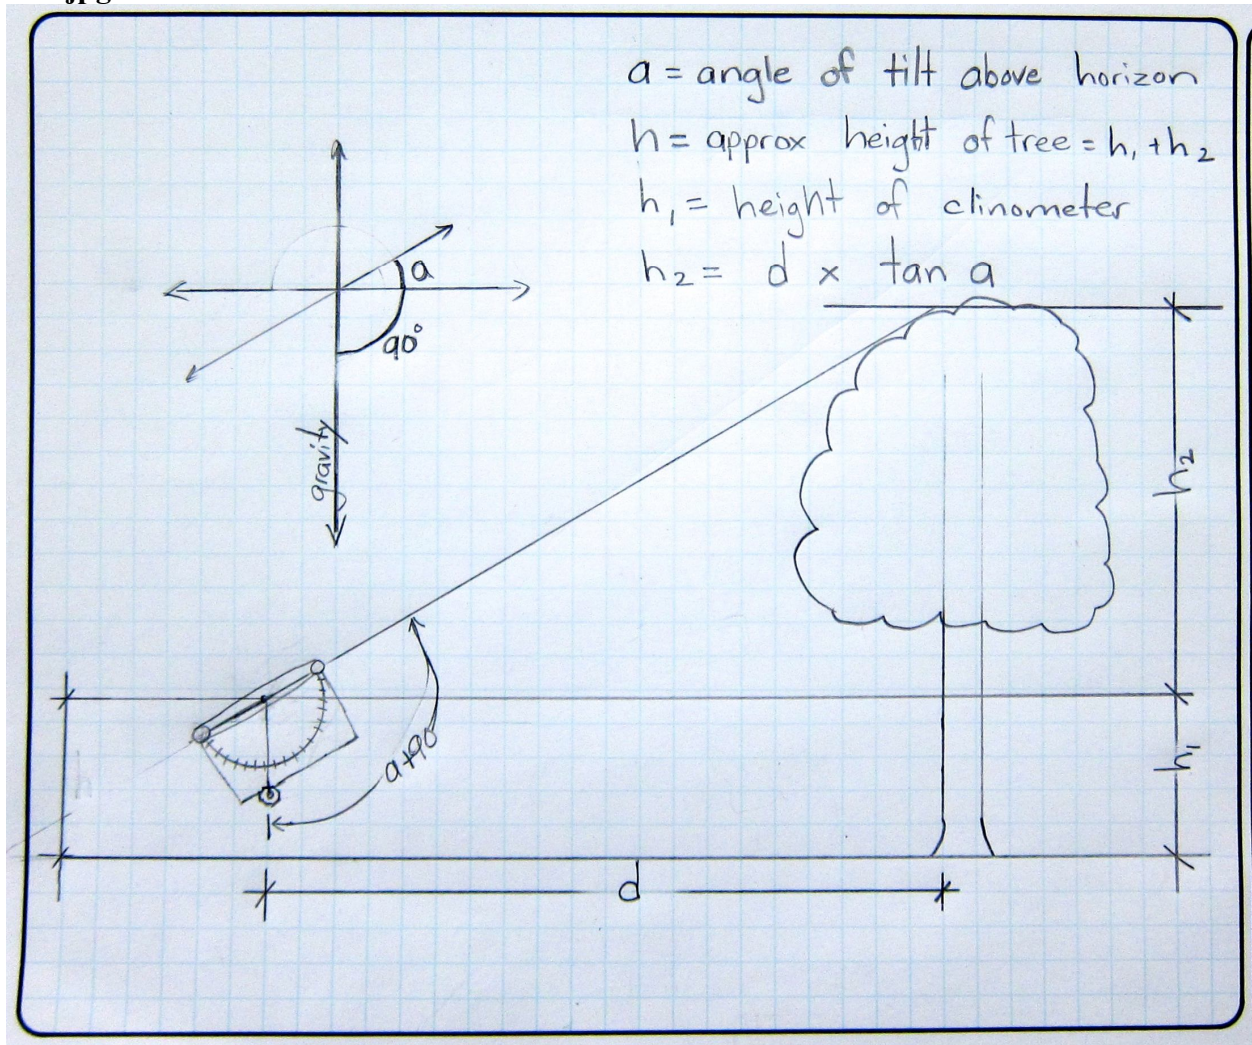 a = angle of tilt above horizon
h = approx height of tree = h₁ + h₂
h₁ = height of clinometer
h₂ = d x tan a
a
90°
gravity
h₂
a+90
h₁
d